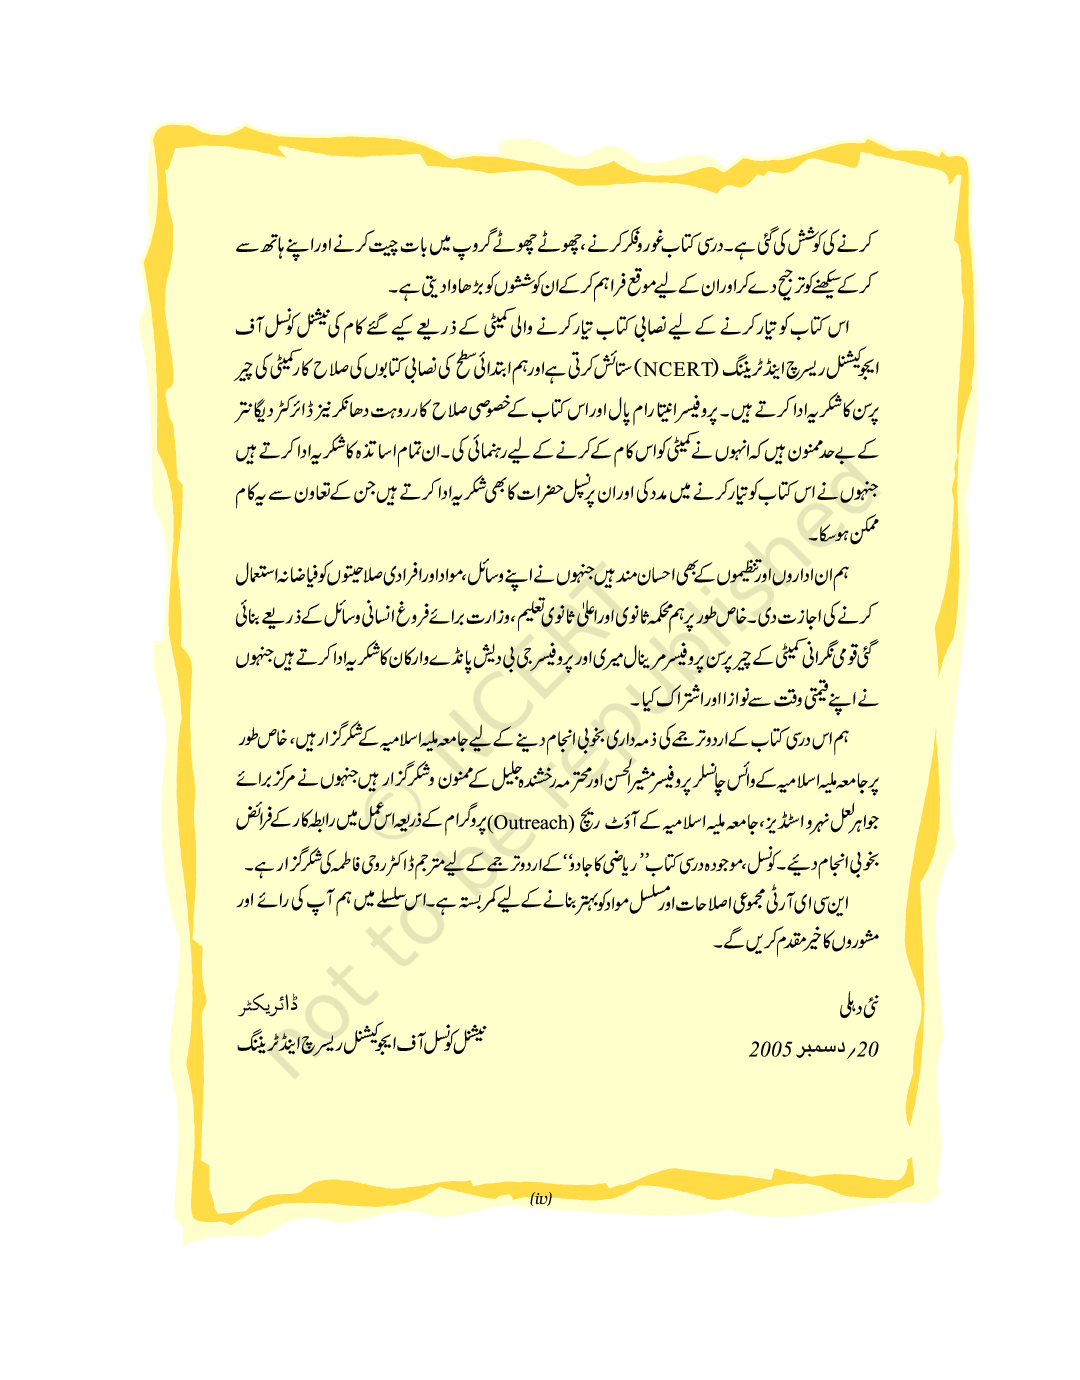 کرنے کی کوشش کی گئی ہے۔ درسی کتاب غور و فکر کرنے، چھوٹے چھوٹے گروپ میں بات چیت کرنے اور اپنے ہاتھ سے
کر کے سیکھنے کو ترجیح دے کر اور ان کے لیے موقع فراہم کر کے ان کوششوں کو بڑھاوا دیتی ہے۔
اس کتاب کو تیّار کرنے کے لیے نصابی کتاب تیّار کرنے والی کمیٹی کے ذریعے کیے گئے کام کی نیشنل کونسل آف
ایجوکیشنل ریسرچ اینڈ ٹریننگ (NCERT) ستائش کرتی ہے اور ہم ابتدائی سطح کی نصابی کتابوں کی صلاح کار کمیٹی کی چیر
پرسن کا شکریہ ادا کرتے ہیں۔ پروفیسر انیتا رام پال اور اس کتاب کے خصوصی صلاح کار روہت دھانکر نیز ڈائرکٹر دیگانتر
کے بے حد ممنون ہیں کہ انہوں نے کمیٹی کو اس کام کے کرنے کے لیے رہنمائی کی۔ ان تمام اساتذہ کا شکریہ ادا کرتے ہیں
جنہوں نے اس کتاب کو تیّار کرنے میں مدد کی اور ان پرنسپل حضرات کا بھی شکریہ ادا کرتے ہیں جن کے تعاون سے یہ کام
ممکن ہوسکا۔
ہم ان اداروں اور تنظیموں کے بھی احسان مند ہیں جنہوں نے اپنے وسائل، مواد اور افرادی صلاحیتوں کو فیاضانہ استعمال
کرنے کی اجازت دی۔ خاص طور پر ہم محکمہ ثانوی اور اعلیٰ ثانوی تعلیم، وزارت برائے فروغ انسانی وسائل کے ذریعے بنائی
گئی قومی نگرانی کمیٹی کے چیر پرسن پروفیسر مرینال میری اور پروفیسر جی پی دیش پانڈے و ارکان کا شکریہ ادا کرتے ہیں جنہوں
نے اپنے قیمتی وقت سے نوازا اور اشتراک کیا۔
ہم اس درسی کتاب کے اردو ترجمے کی ذمہ داری بخوبی انجام دینے کے لیے جامعہ ملیہ اسلامیہ کے شکر گزار ہیں، خاص طور
پر جامعہ ملیہ اسلامیہ کے وائس چانسلر پروفیسر مشیر الحسن اور محترمہ رخشندہ جلیل کے ممنون و شکر گزار ہیں جنہوں نے مرکز برائے
جواہر لعل نہرو اسٹڈیز، جامعہ ملیہ اسلامیہ کے آؤٹ ریچ (Outreach) پروگرام کے ذریعہ اس عمل میں رابطہ کار کے فرائض
بخوبی انجام دئیے۔ کونسل، موجودہ درسی کتاب ”ریاضی کا جادو“ کے اردو ترجمے کے لیے مترجم ڈاکٹر روحی فاطمہ کی شکر گزار ہے۔
این سی ای آر ٹی مجموعی اصلاحات اور مسلسل مواد کو بہتر بنانے کے لیے کمر بستہ ہے۔ اس سلسلے میں ہم آپ کی رائے اور
مشوروں کا خیر مقدم کریں گے۔
نئی دہلی
ڈائریکٹر
20؍ دسمبر 2005
نیشنل کونسل آف ایجوکیشنل ریسرچ اینڈ ٹریننگ
(iv)
© NCERT
not to be republished